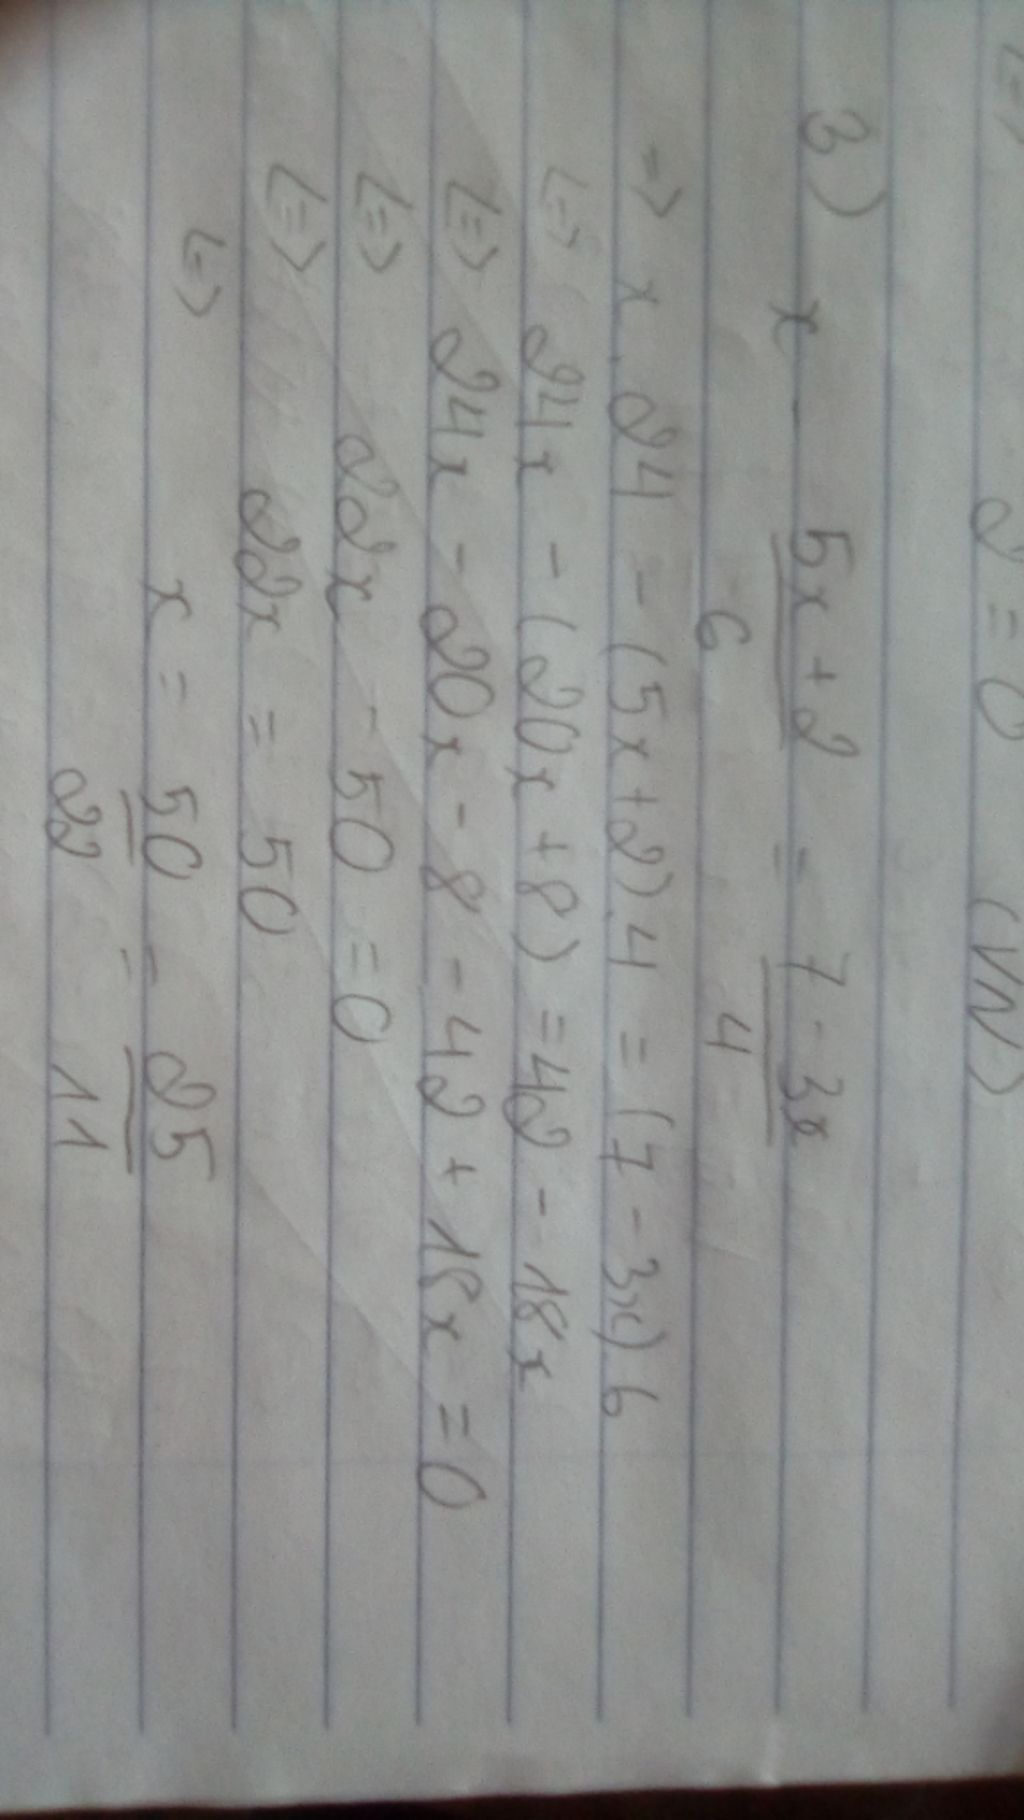 2 = 0 (VN)
3) x - \frac{5x+2}{6} = \frac{7-3x}{4}
=> x.24 - (5x+2).4 = (7-3x)6
<=> 24x - (20x+8) = 42 - 18x
<=> 24x - 20x - 8 - 42 + 18x = 0
<=> 22x - 50 = 0
<=> 22x = 50
<=> x = \frac{50}{22} = \frac{25}{11}